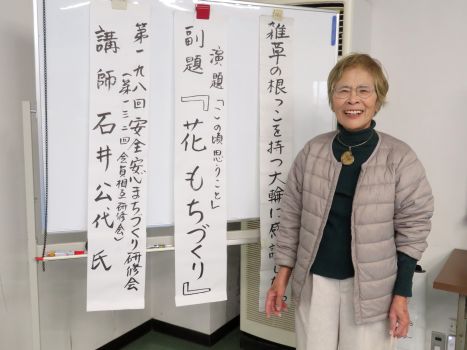 雑草の根っこを持つ大輪に感謝し
演題「この頃思うこと」
副題『花もちづくり』
第一九八回安全安心まちづくり研修会
(第一三二回会員相互研修会)
講師 石井公代氏